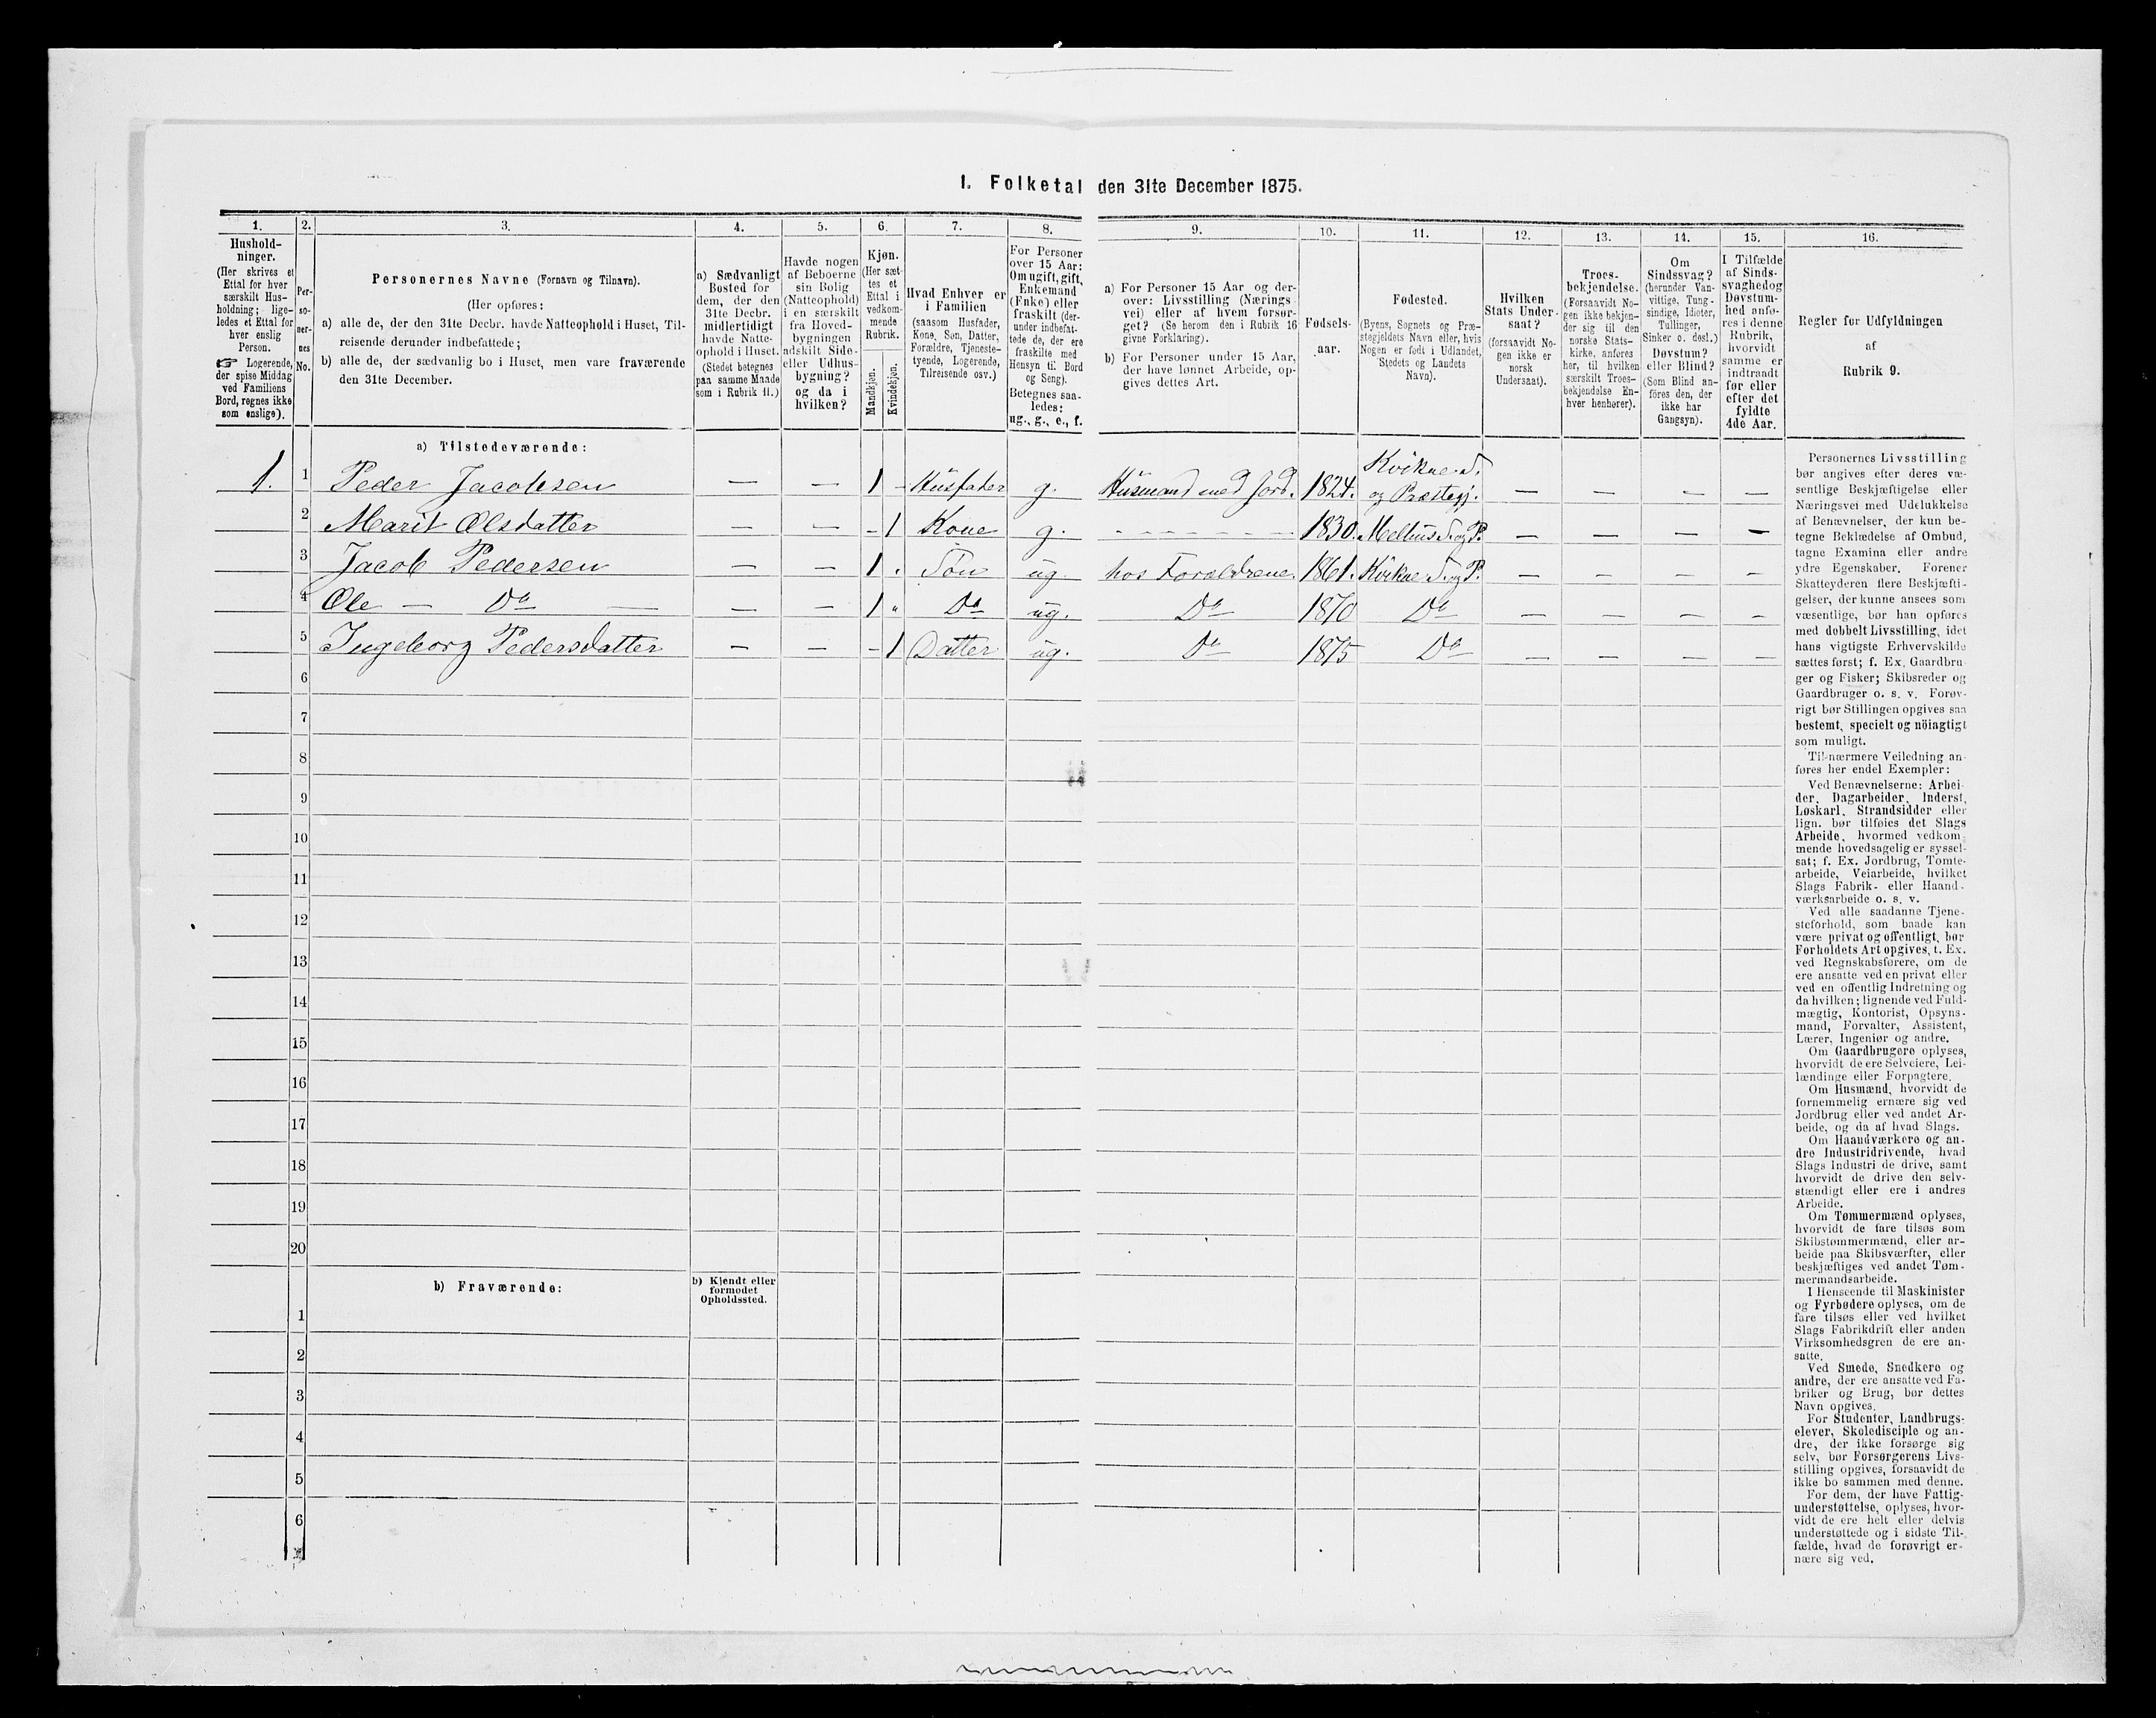 1. Folketal den 31te December 1875.
1. 2. 3. 4. 5. 6. 7. 8. 9. 10. 11. 12. 13. 14. 15. 16.
Hushold-
ninger.
(Her skrives et
Ettal for hver
særskilt Hus-
holdning; lige-
ledes et Ettal for
hver enslig
Person.
☞ Logerende,
der spise Middag
ved Familiens
Bord, regnes ikke
som enslige).
Per-
so-
ner-
nes
No.
Personernes Navne (Fornavn og Tilnavn).
(Her opføres:
a) alle de, der den 31te Decbr. havde Natteophold i Huset, Til-
reisende derunder indbefattede;
b) alle de, der sædvanlig bo i Huset, men vare fraværende
den 31te December.
a) Sædvanligt
Bosted for
dem, der den
31te Decbr.
midlertidigt
havde Natte-
ophold i Huset.
(Stedet betegnes
paa samme Maade
som i Rubrik 11.)
Havde nogen
af Beboerne
sin Bolig
(Natteophold)
i en særskilt
fra Hoved-
bygningen
adskilt Side-
eller Udhus-
bygning?
og da i
hvilken?
Kjøn.
(Her sæt-
tes et
Ettal i
vedkom-
mende
Rubrik.
Mandkjøn.
Kvindekjøn.
Hvad Enhver er
i Familien
(saasom Husfader,
Kone, Søn, Datter,
Forældre, Tjeneste-
tyende, Logerende,
Tilreisende osv.)
For Personer
over 15 Aar:
Om ugift, gift,
Enkemand
(Enke) eller
fraskilt (der-
under indbefat-
tede de, der ere
fraskilte med
Hensyn til Bord
og Seng).
Betegnes saa-
ledes:
ug., g., e., f.
a) For Personer 15 Aar og der-
over: Livsstilling (Nærings-
vei) eller af hvem forsør-
get? (Se herom den i Rubrik 16
givne Forklaring).
b) For Personer under 15 Aar,
der have lønnet Arbeide, op-
gives dettes Art.
Fødsels-
aar.
Fødested.
(Byens, Sognets og Præ-
stegjeldets Navn eller, hvis
Nogen er født i Udlandet,
Stedets og Landets
Navn).
Hvilken
Stats Under-
saat?
(forsaavidt No-
gen ikke er
norsk
Undersaat).
Troes-
bekjendelse.
(Forsaavidt No-
gen ikke bekjen-
der sig til den
norske Stats-
kirke, anføres
her, til hvilken
særskilt Troes-
bekjendelse En-
hver henhører).
Om
Sindssvag?
(herunder Van-
vittige, Tung-
sindige, Idioter,
Tullinger,
Sinker o. desl.)
Døvstum?
eller Blind?
(Som Blind an-
føres den, der
ikke har
Gangsyn).
I Tilfælde
af Sinds-
svaghed og
Døvstum-
hed anfø-
res i denne
Rubrik,
hvorvidt
samme er
indtraadt
før eller
efter det
fyldte
4de Aar.
Regler for Udfyldningen
af
Rubrik 9.
a) Tilstedeværende:
1. 1 Peder Jacobsen — — 1 - Husfader g. Husmand med Jord. 1824. Kvikne S. og Præstegj. — — — —
2 Marit Olsdatter — — - 1 Kone g. - - - - - - 1830. Melhus S. og P. — — — —
3 Jacob Pedersen — — 1 . Søn ug. hos Forældrene. 1861. Kvikne S. og P. — — — —
4 Ole — Do — — — 1 " Do ug. Do 1870 Do — — — —
5 Ingeborg Pedersdatter — — - 1 Datter ug. Do 1875 Do — — — —
6
7
8
9
10
11
12
13
14
15
16
17
18
19
20
b) Fraværende:
b) Kjendt eller
formodet
Opholdssted.
1
2
3
4
5
6
Personernes Livsstilling
bør angives efter deres væ-
sentlige Beskjæftigelse eller
Næringsvei med Udelukkelse
af Benævnelser, der kun be-
tegne Beklædelse af Ombud,
tagne Examina eller andre
ydre Egenskaber. Forener
Skatteyderen flere Beskjæfti-
gelser, der kunne ansees som
væsentlige, bør han opføres
med dobbelt Livsstilling, idet
hans vigtigste Erhvervskilde
sættes først; f. Ex. Gaardbru-
ger og Fisker; Skibsreder og
Gaardbruger o. s. v. Forøv-
rigt bør Stillingen opgives saa
bestemt, specielt og nöiagtigt
som muligt.
Til nærmere Veiledning an-
føres her endel Exempler:
Ved Benævnelserne: Arbei-
der, Dagarbeider, Inderst,
Løskarl, Strandsidder eller
lign. bør tilføies det Slags
Arbeide, hvormed vedkom-
mende hovedsagelig er syssel-
sat; f. Ex. Jordbrug, Tomte-
arbeide, Veiarbeide, hvilket
Slags Fabrik- eller Haand-
værksarbeide o. s. v.
Ved alle saadanne Tjene-
steforhold, som baade kan
være privat og offentligt, bør
Forholdets Art opgives, t. Ex.
ved Regnskabsførere, om de
ere ansatte ved en privat eller
ved en offentlig Indretning og
da hvilken; lignende ved Fuld-
mægtig, Kontorist, Opsyns-
mand, Forvalter, Assistent,
Lærer, Ingeniør og andre.
Om Gaardbrugere oplyses,
hvorvidt de ere Selveiere, Lei-
lændinge eller Forpagtere.
Om Husmænd, hvorvidt de
fornemmelig ernære sig ved
Jordbrug eller ved andet Ar-
beide, og da af hvad Slags.
Om Haandværkere og an-
dre Industridrivende, hvad
Slags Industri de drive, samt
hvorvidt de drive den selv-
stændigt eller ere i andres
Arbeide.
Om Tømmermænd oplyses,
hvorvidt de fare tilsøs som
Skibstømmermænd, eller ar-
beide paa Skibsværfter, eller
beskjæftiges ved andet Tøm-
mermandsarbeide.
I Henseende til Maskinister
og Fyrbødere oplyses, om de
fare tilsøs eller ved hvilket
Slags Fabrikdrift eller anden
Virksomhedsgren de ere an-
satte.
Ved Smede, Snedkere og
andre, der ere ansatte ved Fa-
briker og Brug, bør dettes
Navn opgives.
For Studenter, Landbrugs-
elever, Skoledisciple og an-
dre, der ikke forsørge sig
selv, bør Forsørgerens Livs-
stilling opgives, forsaavidt de
ikke bo sammen med denne.
For dem, der have Fattig-
understøttelse, oplyses, hvor-
vidt de ere helt eller delvis
understøttede og i sidste Til-
fælde, hvad de forøvrigt er-
nære sig ved.